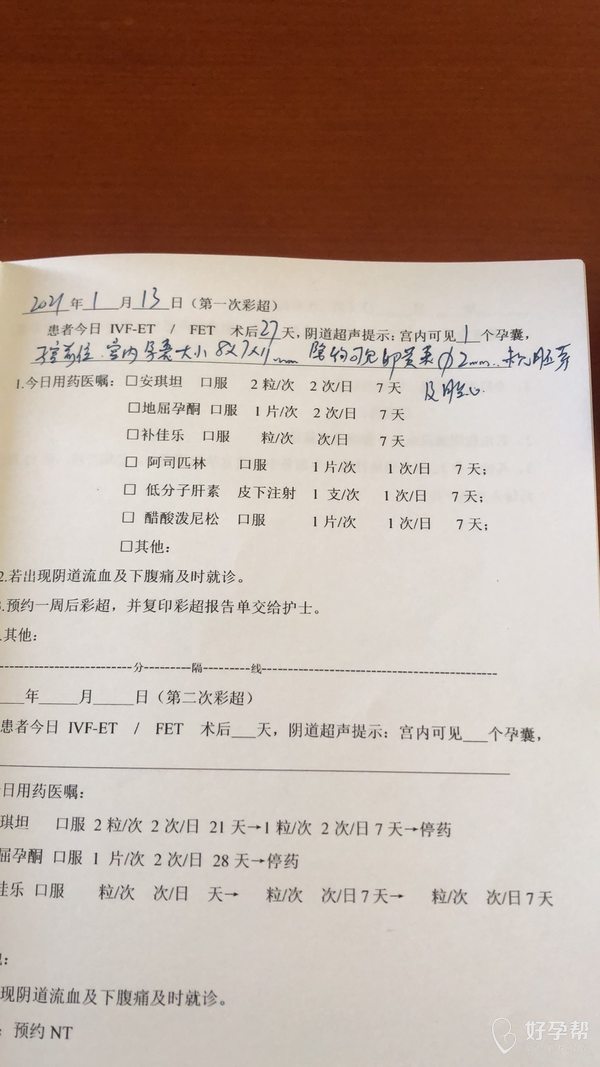 2021年1月13日（第一次彩超）
患者今日 IVF-ET / FET 术后27天，阴道超声提示：宫内可见1个孕囊，
子宫前位 宫内孕囊大小8x7x11mm 隐约可见卵黄囊φ2mm..未见胚芽
及胎心
1.今日用药医嘱：□安琪坦 口服 2粒/次 2次/日 7天
□地屈孕酮 口服 1片/次 2次/日 7天
□补佳乐 口服 粒/次 次/日 7天
□ 阿司匹林 口服 1片/次 1次/日 7天；
□ 低分子肝素 皮下注射 1支/次 1次/日 7天；
□ 醋酸泼尼松 口服 1片/次 1次/日 7天；
□其他：
2.若出现阴道流血及下腹痛及时就诊。
.预约一周后彩超，并复印彩超报告单交给护士。
.其他：
----------------------分---------隔---------线--------------------------------------------
____年_____月_____日（第二次彩超）
患者今日 IVF-ET / FET 术后___天，阴道超声提示：宫内可见___个孕囊，
日用药医嘱：
琪坦 口服 2粒/次 2次/日 21天→1粒/次 2次/日7天→停药
屈孕酮 口服 1片/次 2次/日 28天→停药
佳乐 口服 粒/次 次/日 天→ 粒/次 次/日7天→ 粒/次 次/日7天
：
现阴道流血及下腹痛及时就诊。
：预约NT
好孕帮